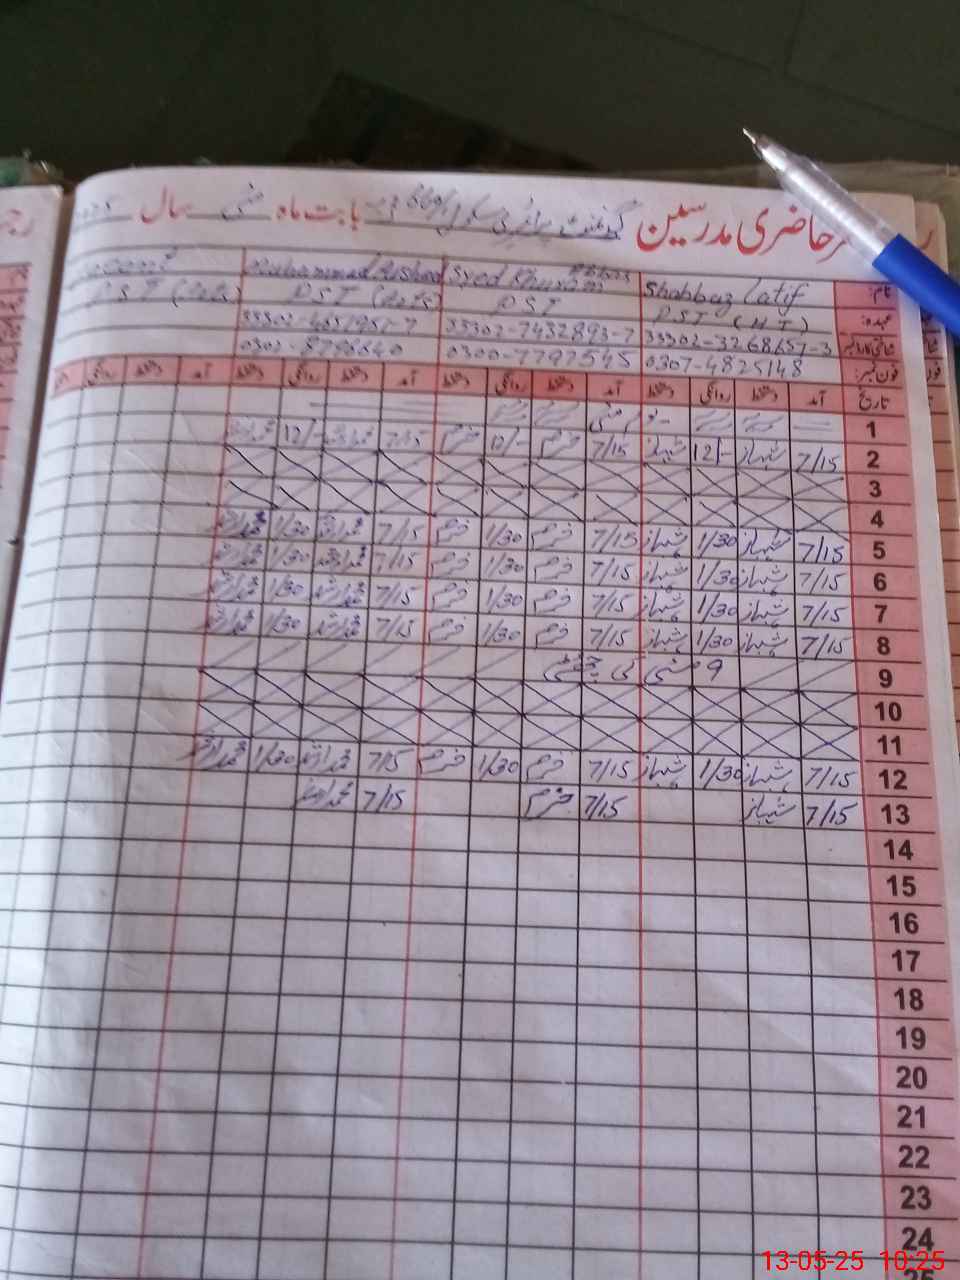 رجسٹر حاضری مدرسین گورنمنٹ پرائمری سکول بابت ماہ مئی سال
نام: Shahbaz Latif Syed Khuram Abbas Muhammad Arshad
عہدہ: PST (HT) PST PST
شناختی کارڈ نمبر 33302-3268657-3 33302-7432893-7 33302-4651951-7
فون نمبر: 0307-4825148 0300-7797545 0302-8796640
تاریخ آمد دستخط روانگی دستخط آمد دستخط روانگی دستخط آمد دستخط روانگی دستخط آمد دستخط روانگی
1 یکم مئی
2 7/15 شہباز 12/- شہباز 7/15 خرم 12/- خرم 7/15 محمد ارشد 12/- محمد ارشد
3
4
5 7/15 شہباز 1/30 شہباز 7/15 خرم 1/30 خرم 7/15 محمد ارشد 1/30 محمد ارشد
6 7/15 شہباز 1/30 شہباز 7/15 خرم 1/30 خرم 7/15 محمد ارشد 1/30 محمد ارشد
7 7/15 شہباز 1/30 شہباز 7/15 خرم 1/30 خرم 7/15 محمد ارشد 1/30 محمد ارشد
8 7/15 شہباز 1/30 شہباز 7/15 خرم 1/30 خرم 7/15 محمد ارشد 1/30 محمد ارشد
9 9 مئی کی چھٹی
10
11
12 7/15 شہباز 1/30 شہباز 7/15 خرم 1/30 خرم 7/15 محمد ارشد 1/30 محمد ارشد
13 7/15 شہباز 7/15 خرم 7/15 محمد ارشد
14
15
16
17
18
19
20
21
22
23
24
13-05-25 10:25